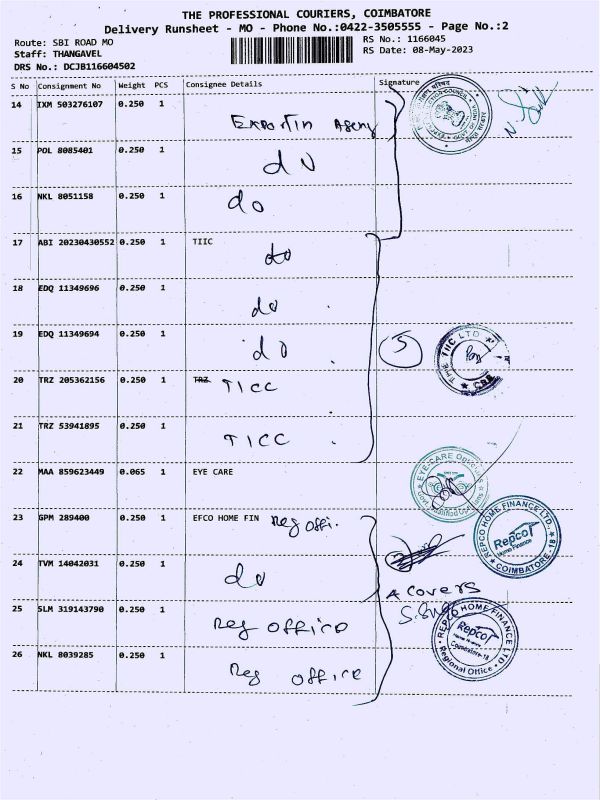 THE PROFESSIONAL COURIERS, COIMBATORE
Delivery Runsheet - MO - Phone No.:0422-3505555 - Page No.:2
Route: SBI ROAD MO
RS No.: 1166045
Staff: THANGAVEL
RS Date: 08-May-2023
DRS No.: DCJB116604502
S No Consignment No Weight PCS Consignee Details Signature
14 IXM 503276107 0.250 1
15 POL 8085401 0.250 1
do
16 NKL 8051158 0.250 1
do
17 ABI 20230430552 0.250 1 TIIC
do
18 EDQ 11349696 0.250 1
do
19 EDQ 11349694 0.250 1
do
5
THE TIIC LTD
CBE
20 TRZ 205362156 0.250 1 TRZ TICC
21 TRZ 53941895 0.250 1
TICC
22 MAA 859623449 0.065 1 EYE CARE
EYE-CARE Opticals
23 GPM 289400 0.250 1 EFCO HOME FIN Reg offi.
REPCO HOME FINANCE LTD.,
Repco
Home Finance
COIMBATORE-18
24 TVM 14042031 0.250 1
do
4 covers
25 SLM 319143790 0.250 1
Reg office
REPCO HOME FINANCE LTD
Repco
Home Finance
Coimbatore-18
Regional Office
26 NKL 8039285 0.250 1
Reg office